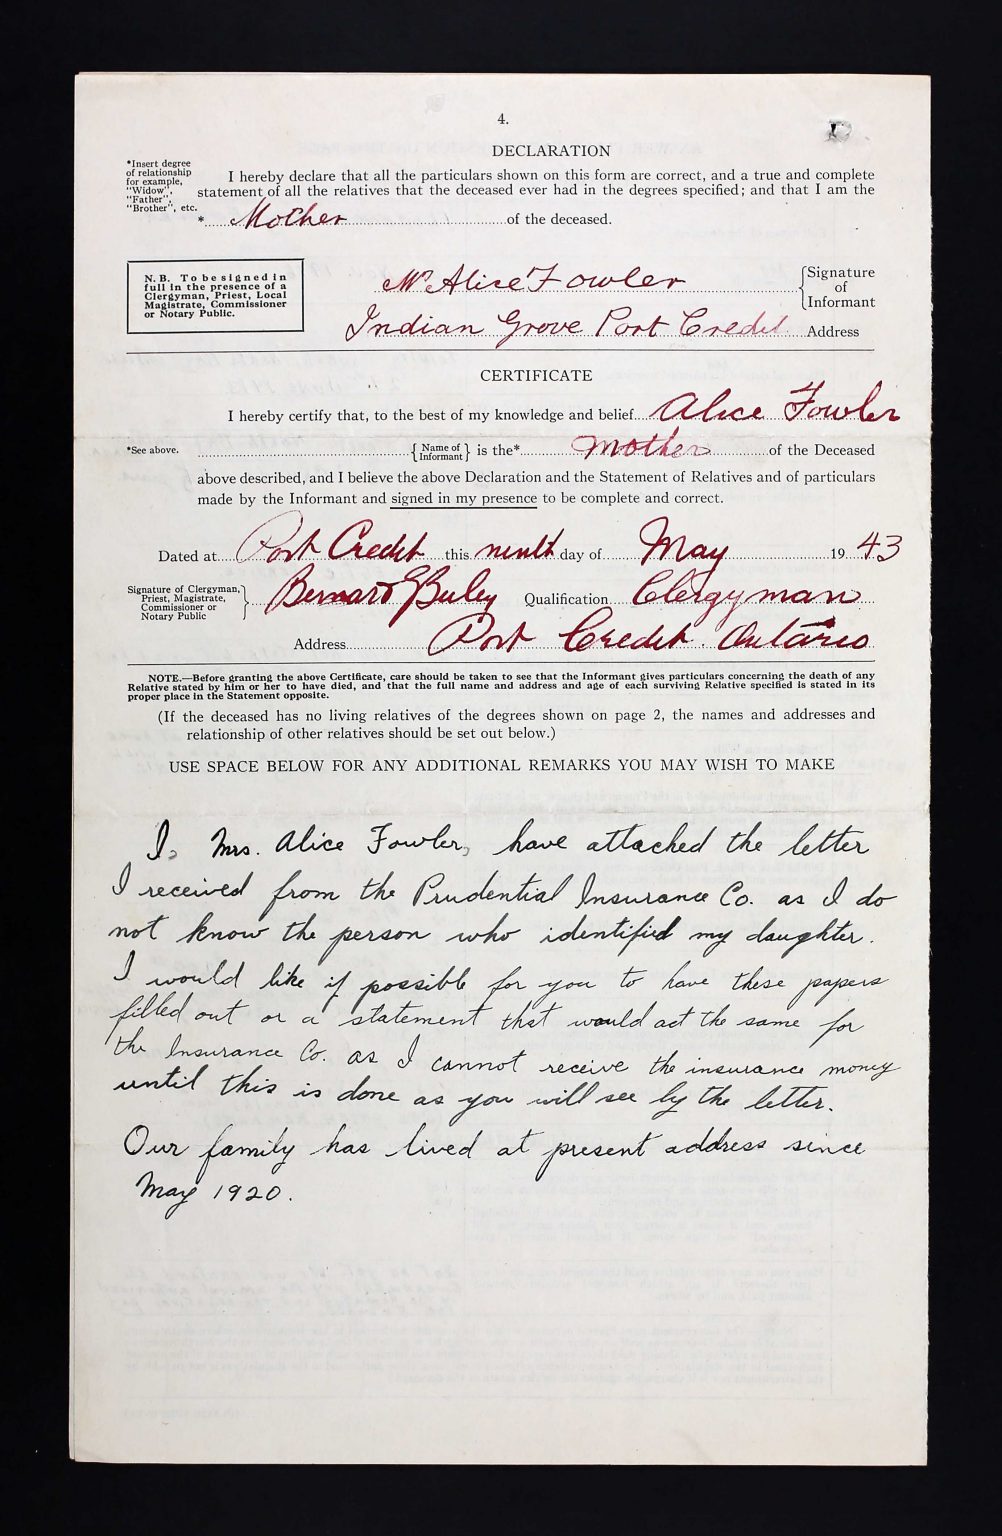 4.
DECLARATION
*Insert degree
of relationship
for example,
"Widow",
"Father",
"Brother", etc.
I hereby declare that all the particulars shown on this form are correct, and a true and complete
statement of all the relatives that the deceased ever had in the degrees specified; and that I am the
* Mother of the deceased.
N.B. To be signed in
full in the presence of a
Clergyman, Priest, Local
Magistrate, Commissioner
or Notary Public.
Mrs Alice Fowler { Signature of Informant
Indian Grove Port Credit Address
CERTIFICATE
I hereby certify that, to the best of my knowledge and belief Alice Fowler
*See above. { Name of Informant } is the* Mother of the Deceased
above described, and I believe the above Declaration and the Statement of Relatives and of particulars
made by the Informant and signed in my presence to be complete and correct.
Dated at Port Credit this ninth day of May 1943
Signature of Clergyman,
Priest, Magistrate,
Commissioner or
Notary Public } Bernard Buley Qualification Clergyman
Address Port Credit. Ontario
NOTE.—Before granting the above Certificate, care should be taken to see that the Informant gives particulars concerning the death of any
Relative stated by him or her to have died, and that the full name and address and age of each surviving Relative specified is stated in its
proper place in the Statement opposite.
(If the deceased has no living relatives of the degrees shown on page 2, the names and addresses and
relationship of other relatives should be set out below.)
USE SPACE BELOW FOR ANY ADDITIONAL REMARKS YOU MAY WISH TO MAKE
I, Mrs. Alice Fowler, have attached the letter
I received from the Prudential Insurance Co. as I do
not know the person who identified my daughter.
I would like if possible for you to have these papers
filled out or a statement that would act the same for
the Insurance Co. as I cannot receive the insurance money
until this is done as you will see by the letter.
Our family has lived at present address since
May 1920.